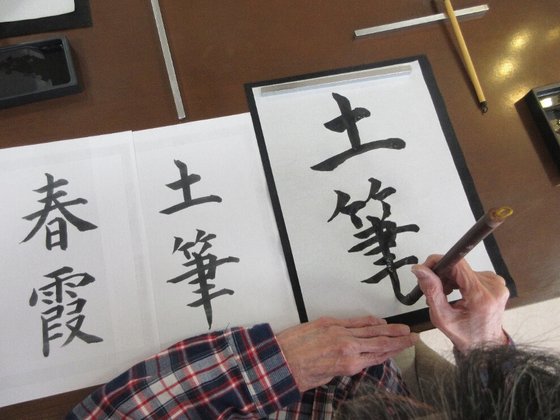 土筆
土筆
春霞